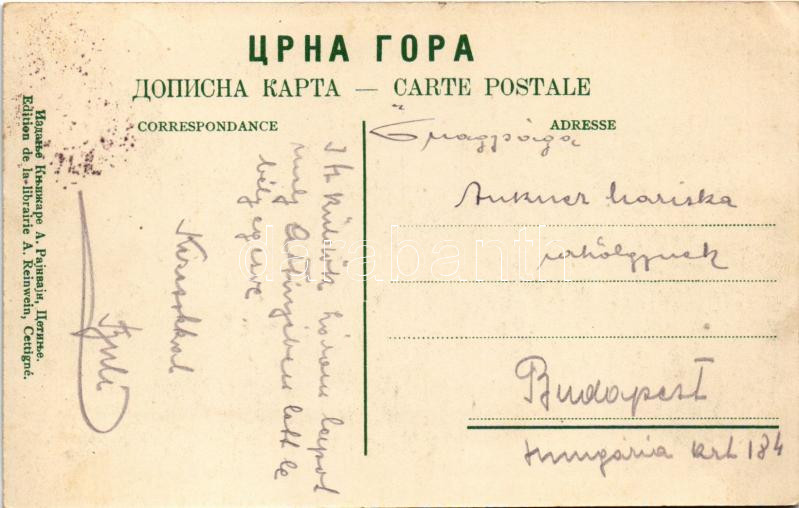 ЦРНА ГОРА
ДОПИСНА КАРТА — CARTE POSTALE
CORRESPONDANCE
ADRESSE
Издање Књижаре А. Рајнвајн, Цетиње.
Edition de la-librairie A. Reinwein, Cettigné.
Itt küldök három lapot
mely Cettingében lett le
bélyegezve.
Őnagysága
Mariska
úrhölgynek
Budapest
Hungária krt 184
darabanth